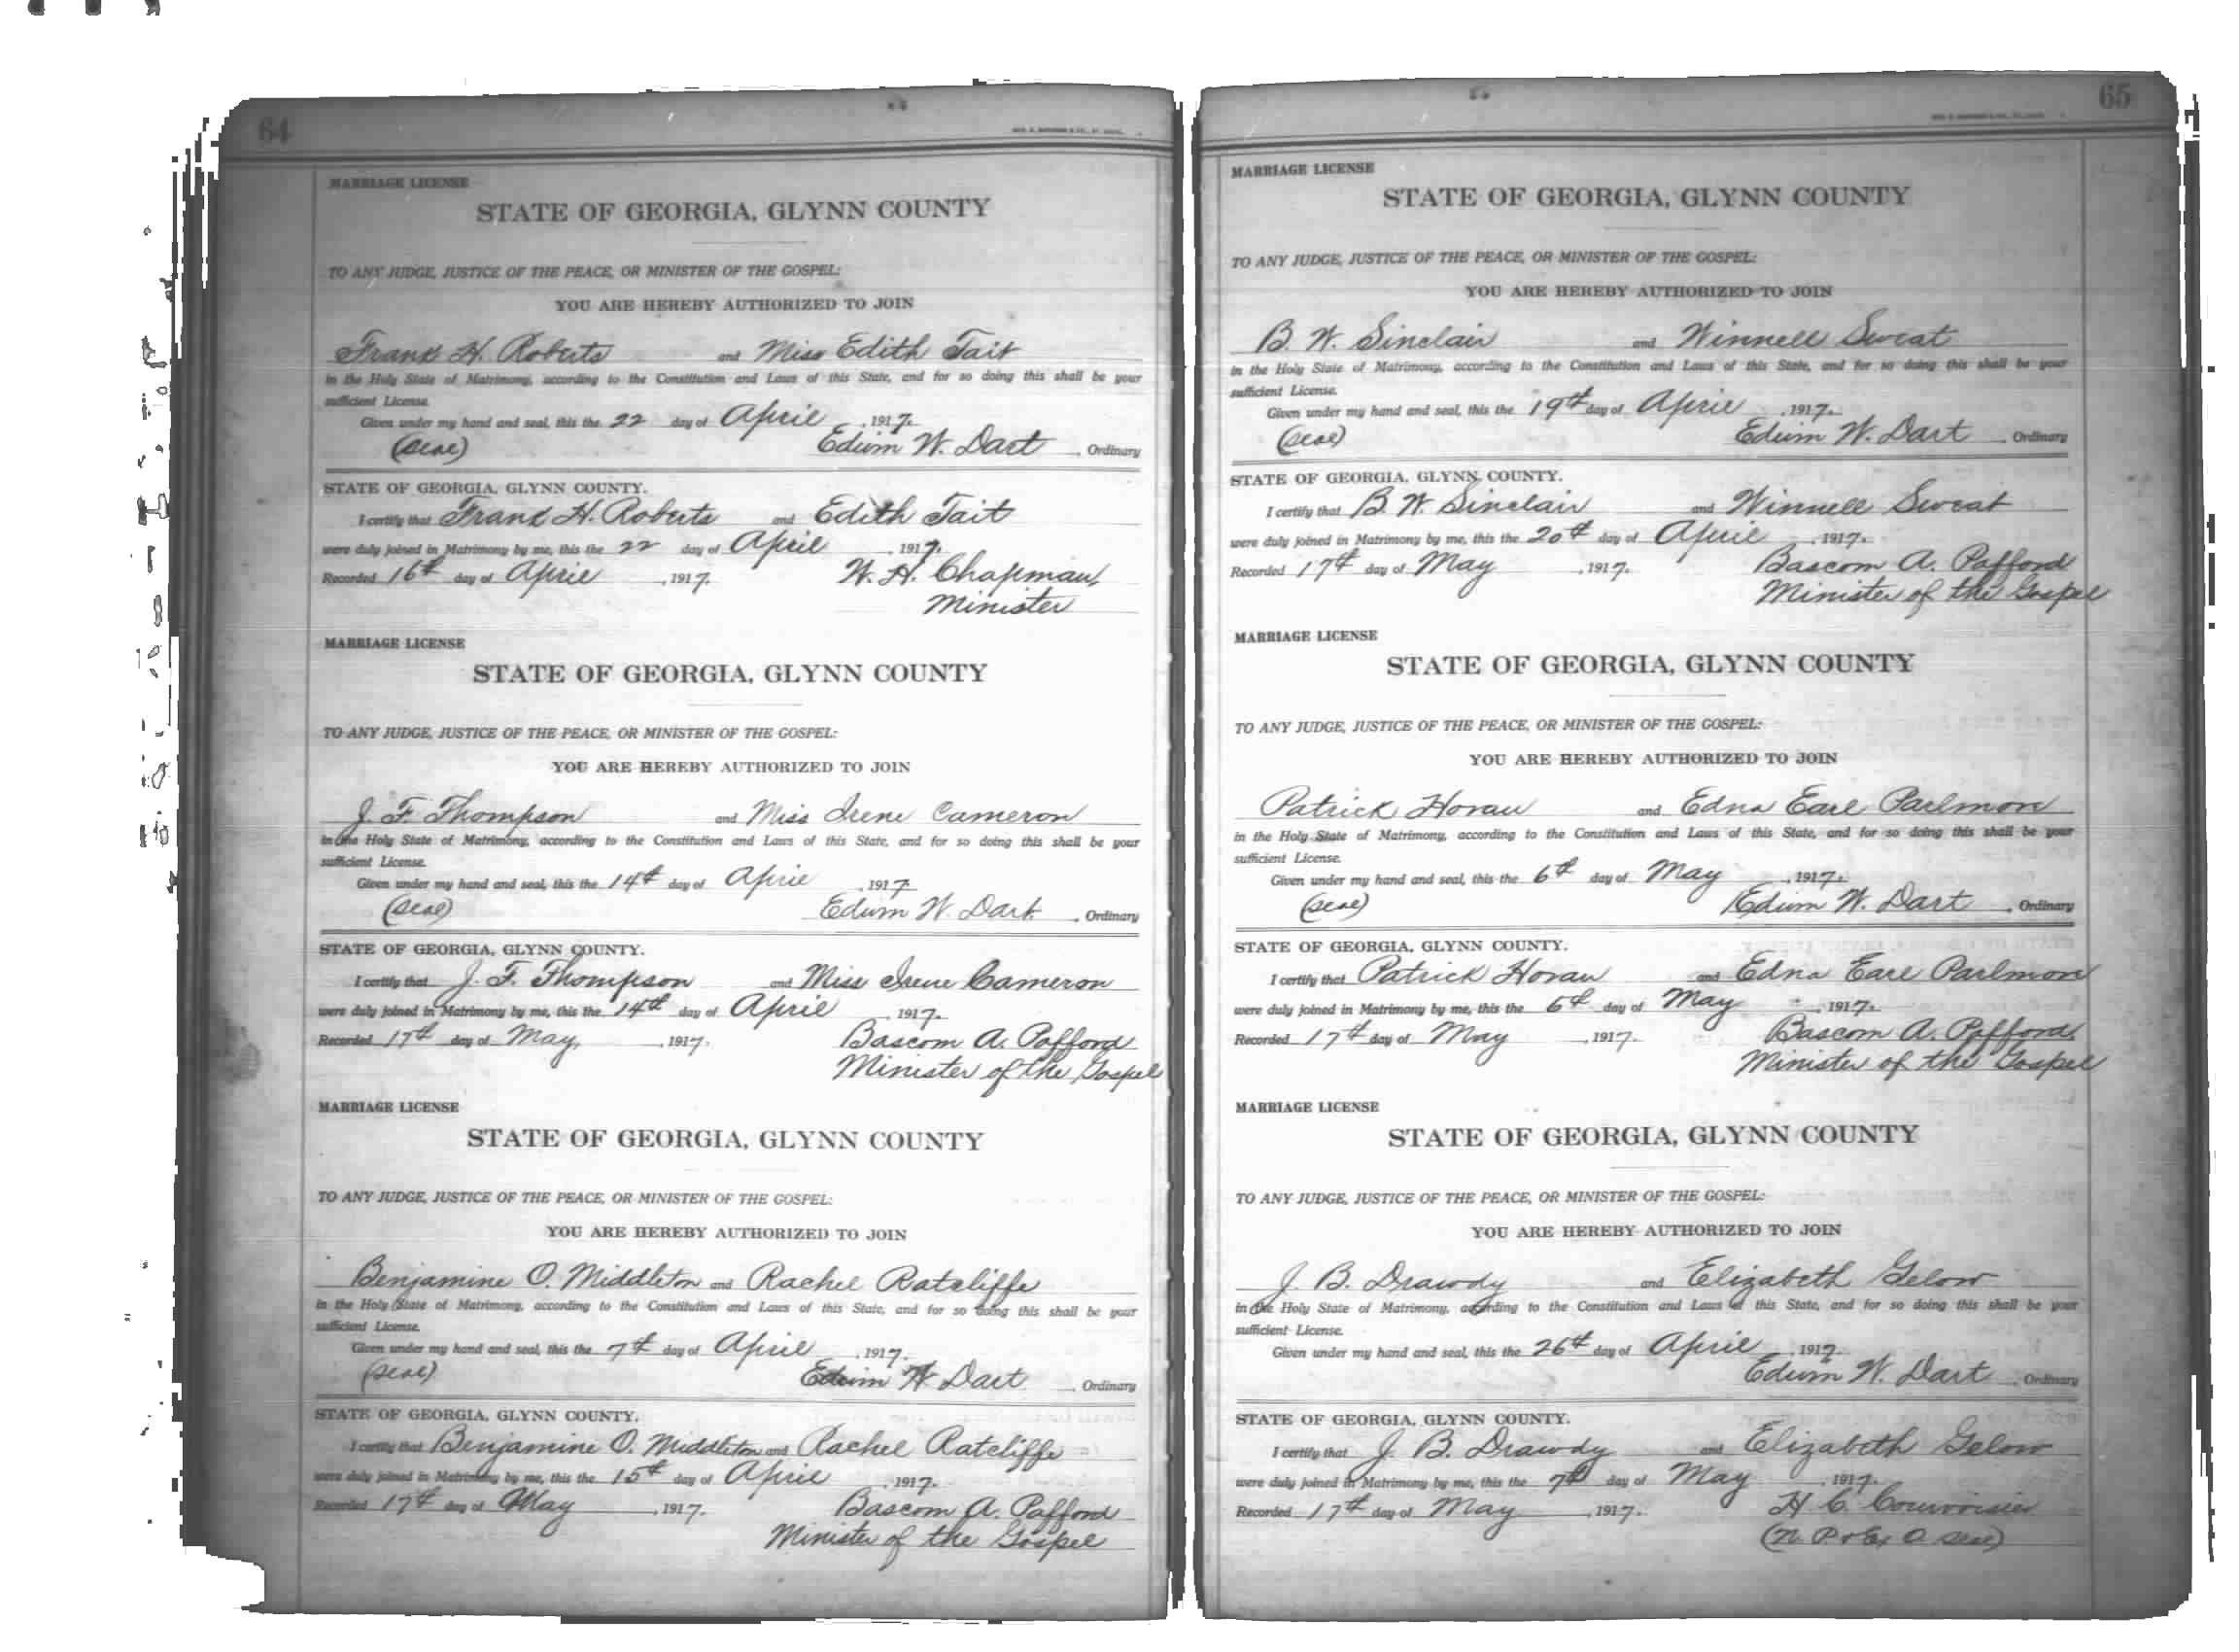 64
MARRIAGE LICENSE
STATE OF GEORGIA, GLYNN COUNTY
TO ANY JUDGE, JUSTICE OF THE PEACE, OR MINISTER OF THE GOSPEL:
YOU ARE HEREBY AUTHORIZED TO JOIN
Frank H. Roberts and Miss Edith Tait
in the Holy State of Matrimony, according to the Constitution and Laws of this State, and for so doing this shall be your
sufficient License.
Given under my hand and seal, this the 22 day of April, 1917.
(Seal) Edwin W. Dart, Ordinary
STATE OF GEORGIA, GLYNN COUNTY.
I certify that Frank H. Roberts and Edith Tait
were duly joined in Matrimony by me, this the 22 day of April, 1917.
Recorded 16th day of April, 1917. W. H. Chapman,
Minister
MARRIAGE LICENSE
STATE OF GEORGIA, GLYNN COUNTY
TO ANY JUDGE, JUSTICE OF THE PEACE, OR MINISTER OF THE GOSPEL:
YOU ARE HEREBY AUTHORIZED TO JOIN
J. F. Thompson and Miss Irene Cameron
in the Holy State of Matrimony, according to the Constitution and Laws of this State, and for so doing this shall be your
sufficient License.
Given under my hand and seal, this the 14th day of April, 1917
(Seal) Edwin W. Dart, Ordinary
STATE OF GEORGIA, GLYNN COUNTY.
I certify that J. F. Thompson and Miss Irene Cameron
were duly joined in Matrimony by me, this the 14th day of April, 1917.
Recorded 17th day of May, 1917. Bascom A. Pafford
Minister of the Gospel
MARRIAGE LICENSE
STATE OF GEORGIA, GLYNN COUNTY
TO ANY JUDGE, JUSTICE OF THE PEACE, OR MINISTER OF THE GOSPEL:
YOU ARE HEREBY AUTHORIZED TO JOIN
Benjamine O. Middleton and Rachel Ratcliffe
in the Holy State of Matrimony, according to the Constitution and Laws of this State, and for so doing this shall be your
sufficient License.
Given under my hand and seal, this the 7th day of April, 1917.
(Seal) Edwin W Dart, Ordinary
STATE OF GEORGIA, GLYNN COUNTY.
I certify that Benjamine O. Middleton and Rachel Ratcliffe
were duly joined in Matrimony by me, this the 15th day of April, 1917.
Recorded 17th day of May, 1917. Bascom A. Pafford
Minister of the Gospel
65
MARRIAGE LICENSE
STATE OF GEORGIA, GLYNN COUNTY
TO ANY JUDGE, JUSTICE OF THE PEACE, OR MINISTER OF THE GOSPEL:
YOU ARE HEREBY AUTHORIZED TO JOIN
B. W. Sinclair and Winnell Sweat
in the Holy State of Matrimony, according to the Constitution and Laws of this State, and for so doing this shall be your
sufficient License.
Given under my hand and seal, this the 19th day of April, 1917.
(Seal) Edwin W. Dart, Ordinary
STATE OF GEORGIA, GLYNN COUNTY.
I certify that B. W. Sinclair and Winnell Sweat
were duly joined in Matrimony by me, this the 20th day of April, 1917.
Recorded 17th day of May, 1917. Bascom A. Pafford
Minister of the Gospel
MARRIAGE LICENSE
STATE OF GEORGIA, GLYNN COUNTY
TO ANY JUDGE, JUSTICE OF THE PEACE, OR MINISTER OF THE GOSPEL:
YOU ARE HEREBY AUTHORIZED TO JOIN
Patrick Horan and Edna Earl Parlmon
in the Holy State of Matrimony, according to the Constitution and Laws of this State, and for so doing this shall be your
sufficient License.
Given under my hand and seal, this the 6th day of May, 1917.
(Seal) Edwin W. Dart, Ordinary
STATE OF GEORGIA, GLYNN COUNTY.
I certify that Patrick Horan and Edna Earl Parlmon
were duly joined in Matrimony by me, this the 6th day of May, 1917.
Recorded 17th day of May, 1917. Bascom A. Pafford,
Minister of the Gospel
MARRIAGE LICENSE
STATE OF GEORGIA, GLYNN COUNTY
TO ANY JUDGE, JUSTICE OF THE PEACE, OR MINISTER OF THE GOSPEL:
YOU ARE HEREBY AUTHORIZED TO JOIN
J. B. Drawdy and Elizabeth Gelow
in the Holy State of Matrimony, according to the Constitution and Laws of this State, and for so doing this shall be your
sufficient License.
Given under my hand and seal, this the 26th day of April, 1917.
Edwin W. Dart, Ordinary
STATE OF GEORGIA, GLYNN COUNTY.
I certify that J. B. Drawdy and Elizabeth Gelow
were duly joined in Matrimony by me, this the 7th day of May, 1917.
Recorded 17th day of May, 1917. H. C. Courvoisier
(N. P. & Ex O Seal)